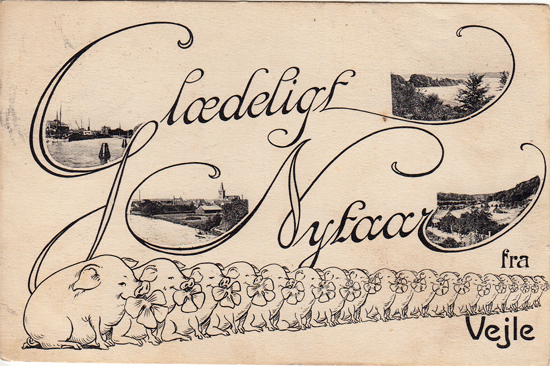 Glædeligt
Nytaar
fra
Vejle